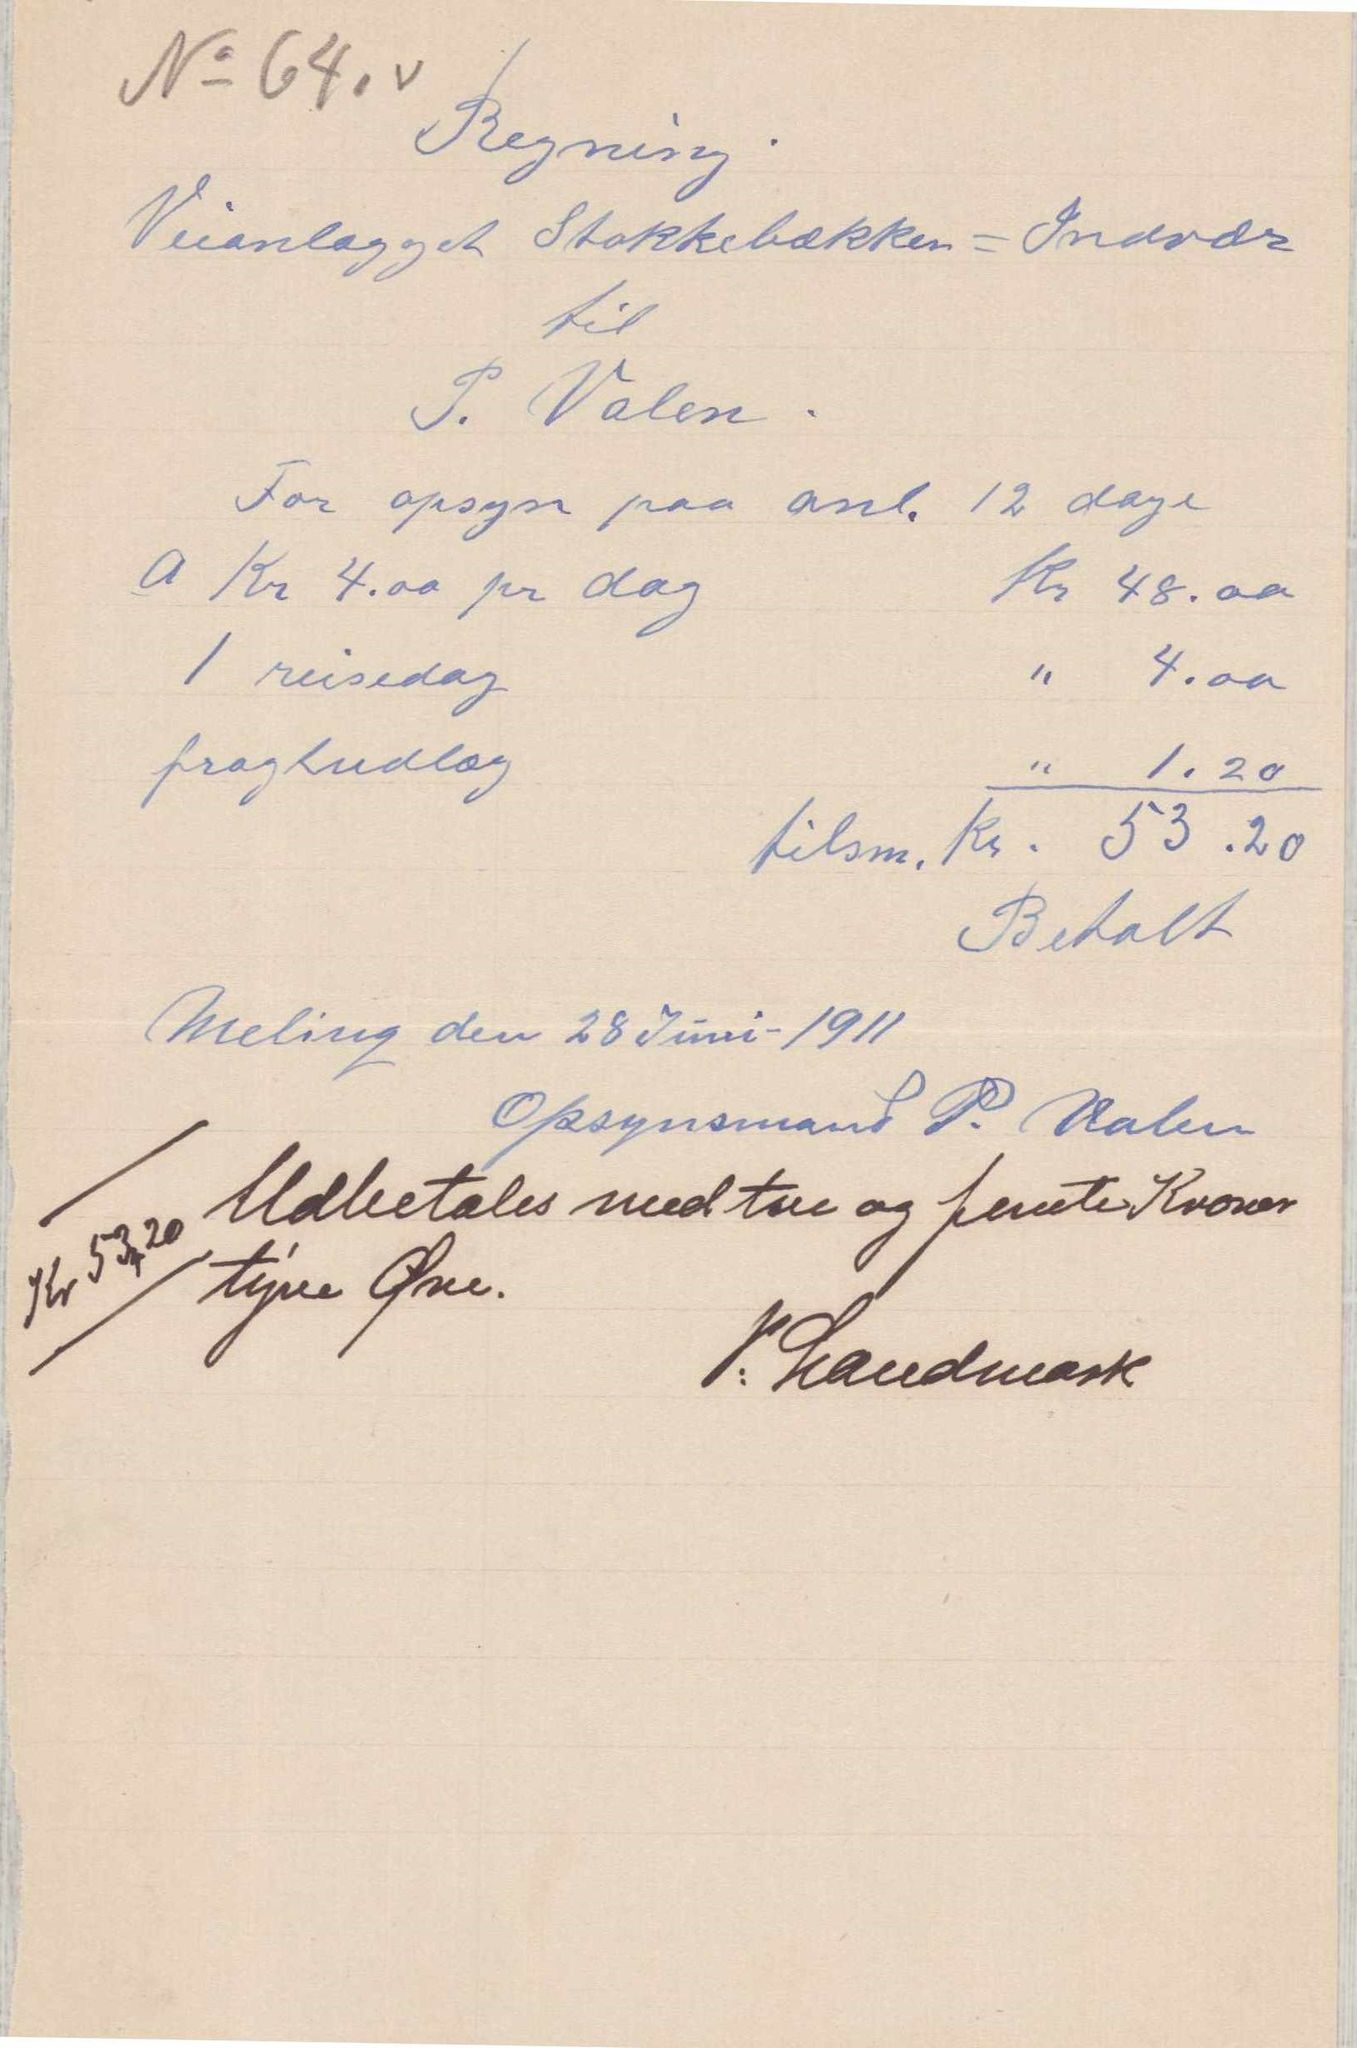 No 64. v
Regning.
Veianlægget Stokkebækken = Indvær
til
P. Valen.
For opsyn paa anl. 12 dage
a Kr 4.00 pr dag Kr 48.00
1 reisedag " 4.00
fragtudlæg " 1.20
tilsm. Kr. 53.20
Betalt
Meling den 28 Juni - 1911
Opsynsmand P. Valen
Udbetales med tre og femti Kroner
Kr 53,20
tyve Øre.
P. Landmark